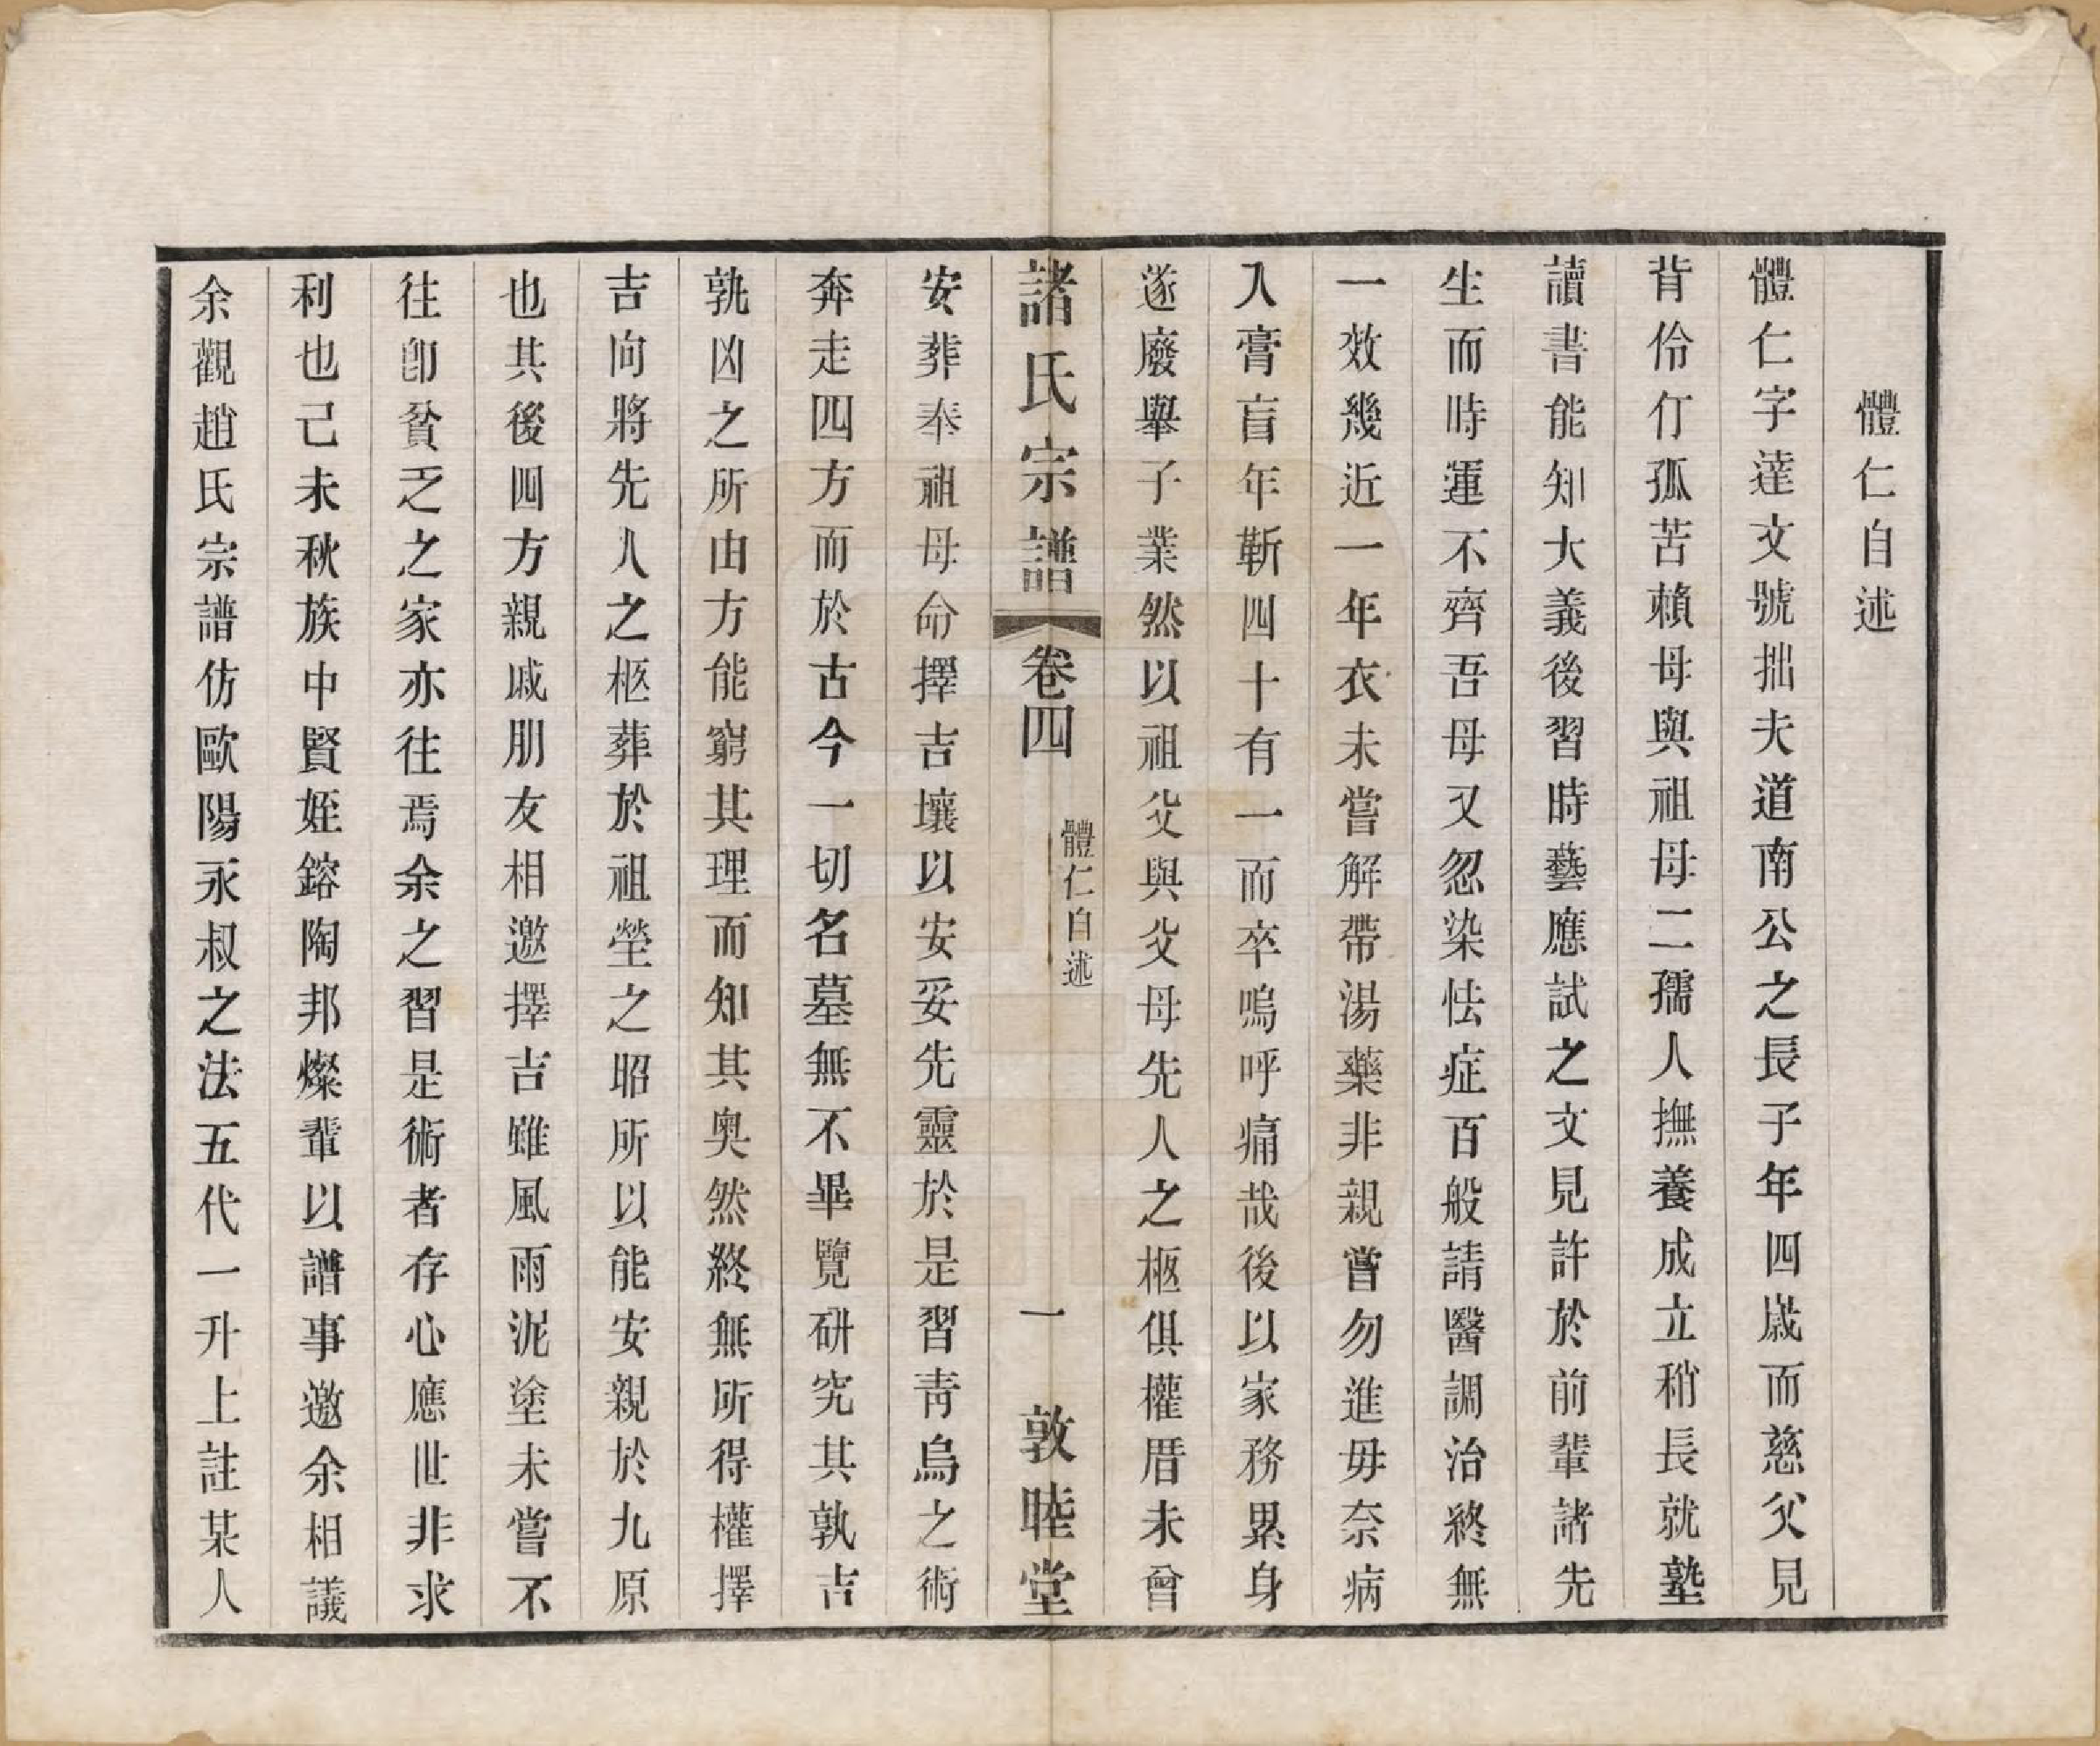 體仁自述
體仁字達文號拙夫道南公之長子年四歲而慈父見
背伶仃孤苦賴母與祖母二孺人撫養成立稍長就塾
讀書能知大義後習時藝應試之文見許於前輩諸先
生而時運不齊吾母又忽染怯症百般請醫調治終無
一效幾近一年衣未嘗解帶湯藥非親嘗勿進毋奈病
入膏盲年靳四十有一而卒嗚呼痛哉後以家務累身
遂廢舉子業然以祖父與父母先人之柩俱權厝未曾
諸氏宗譜 卷四 體仁自述 一 敦睦堂
安葬奉祖母命擇吉壤以安妥先靈於是習靑烏之術
奔走四方而於古今一切名墓無不畢覽研究其孰吉
孰凶之所由方能窮其理而知其奥然終無所得權擇
吉向將先人之柩葬於祖塋之昭所以能安親於九原
也其後四方親戚朋友相邀擇吉雖風雨泥塗未嘗不
往卽貧乏之家亦往焉余之習是術者存心應世非求
利也己未秋族中賢姪鎔陶邦燦輩以譜事邀余相議
余觀趙氏宗譜仿歐陽永叔之法五代一升上註某人